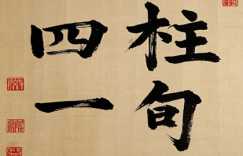 柱句
四一